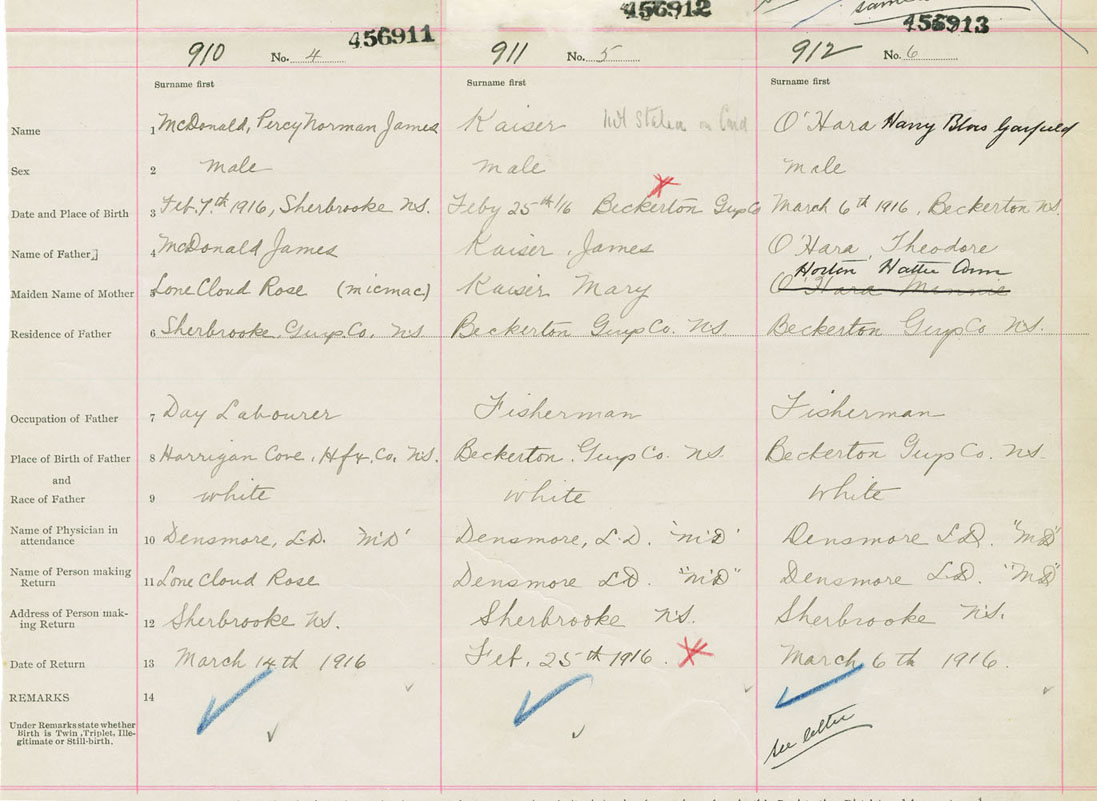 456911
456912
456913
910 No. 4
911 No. 5
912 No. 6
Surname first
Surname first
Surname first
Name 1 McDonald, Percy Norman James
Kaiser Not Stated on Card
O'Hara Harry Blois Garfield
Sex 2 male
male
male
Date and Place of Birth 3 Feb. 7th 1916, Sherbrooke N.S.
Feby 25th/16 Beckerton Guys Co
March 6th 1916, Beckerton N.S.
Name of Father 4 McDonald James
Kaiser, James
O'Hara, Theodore
Maiden Name of Mother 5 Lone Cloud Rose (micmac)
Kaiser Mary
Horton Hattie Ann
O'Hara Minnie
Residence of Father 6 Sherbrooke, Guys. Co. N.S.
Beckerton Guys Co. N.S
Beckerton Guys Co N.S.
Occupation of Father 7 Day Labourer
Fisherman
Fisherman
Place of Birth of Father 8 Harrigan Cove, Hfx. Co. N.S.
Beckerton Guys Co. N.S
Beckerton Guys Co. N.S.
and
Race of Father 9 White
White
White
Name of Physician in
attendance 10 Densmore, L.D. "M.D"
Densmore, L.D. "M.D"
Densmore L.D. "M.D"
Name of Person making
Return 11 Lone Cloud Rose
Densmore L.D. "M.D"
Densmore L.D. "M.D"
Address of Person mak-
ing Return 12 Sherbrooke N.S.
Sherbrooke N.S.
Sherbrooke N.S.
Date of Return 13 March 14th 1916
Feb. 25th 1916.
March 6th 1916.
REMARKS 14
Under Remarks state whether
Birth is Twin, Triplet, Ille-
gitimate or Still-birth.
see letter